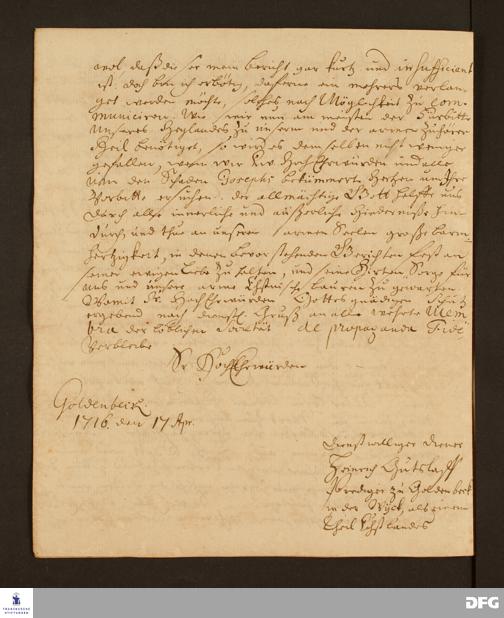 wol, daß dieser mein bericht gar kurtz und insufficient
ist: doch bin ich erbötig, daferne ein mehrers verlan-
get werden möchte, solches nach Möglichkeit zu com-
municiren. Wie wir nun am meisten der Fürbitte
unseres Heylandes zu unserm und der armen Zuhörer
Heil benötiget, so wird es demselben nicht weniger
gefallen, wenn wir Ew HochEhrwürden und alle
um den Schaden Josephs bekümmerte Hertzen um Ihre
Vorbitte ersuchen. der allmächtige Gott helffe uns
durch alle innerliche und äußerliche Hindernisse hin-
durch, und thue an unsern armen Seelen große barm-
hertzigkeit, in denen bevorstehenden Gerichten fest an
seiner ewigen Liebe zu halten, und seine Hirten Sorge für
uns und unsere arme Ehstnische zu gewarten.
Womit Ew HochEhrwürden Gottes gnädigen Schutz
ergebend nach dienstl. Gruß an alle wehrte Mem
bra der löblichen Societät de propaganda Fide
Verbleibe
Ew HochEhrwürden
Goldenbeck.
1716. den 17 Apr.
dienstwilliger diener
Heinrich Gutslaff
Prediger zu Goldenbeck
in der Wyck, als einem
Theil Ehstlandes
FRANCKESCHE STIFTUNGEN
DFG